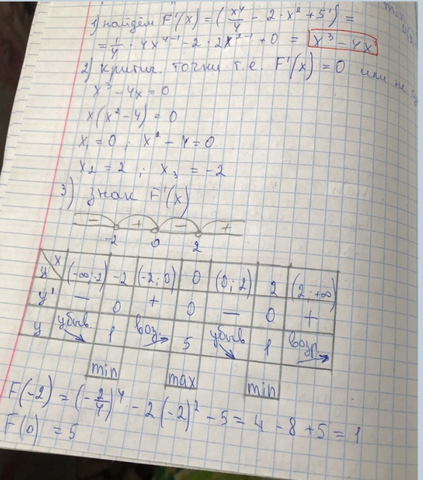 1) найдём F'(x) = (x⁴/4 - 2·x² + 5') =
= 1/4 · 4x⁴⁻¹ - 2·2x²⁻¹ + 0 = x³ - 4x
2) критич. точки т.е. F'(x) = 0 или не
x³ - 4x = 0
x(x² - 4) = 0
x₁ = 0 ; x² - 4 = 0
x₂ = 2 ; x₃ = -2
3) Знак F'(x)
- + - +
-2 0 2
y x (-∞;-2) -2 (-2;0) 0 (0;2) 2 (2;+∞)
y' - 0 + 0 - 0 +
y убыв. 1 воз. 5 убыв 1 возр.
min max min
F(-2) = (-2/4)⁴ - 2(-2)² - 5 = 4 - 8 + 5 = 1
F(0) = 5